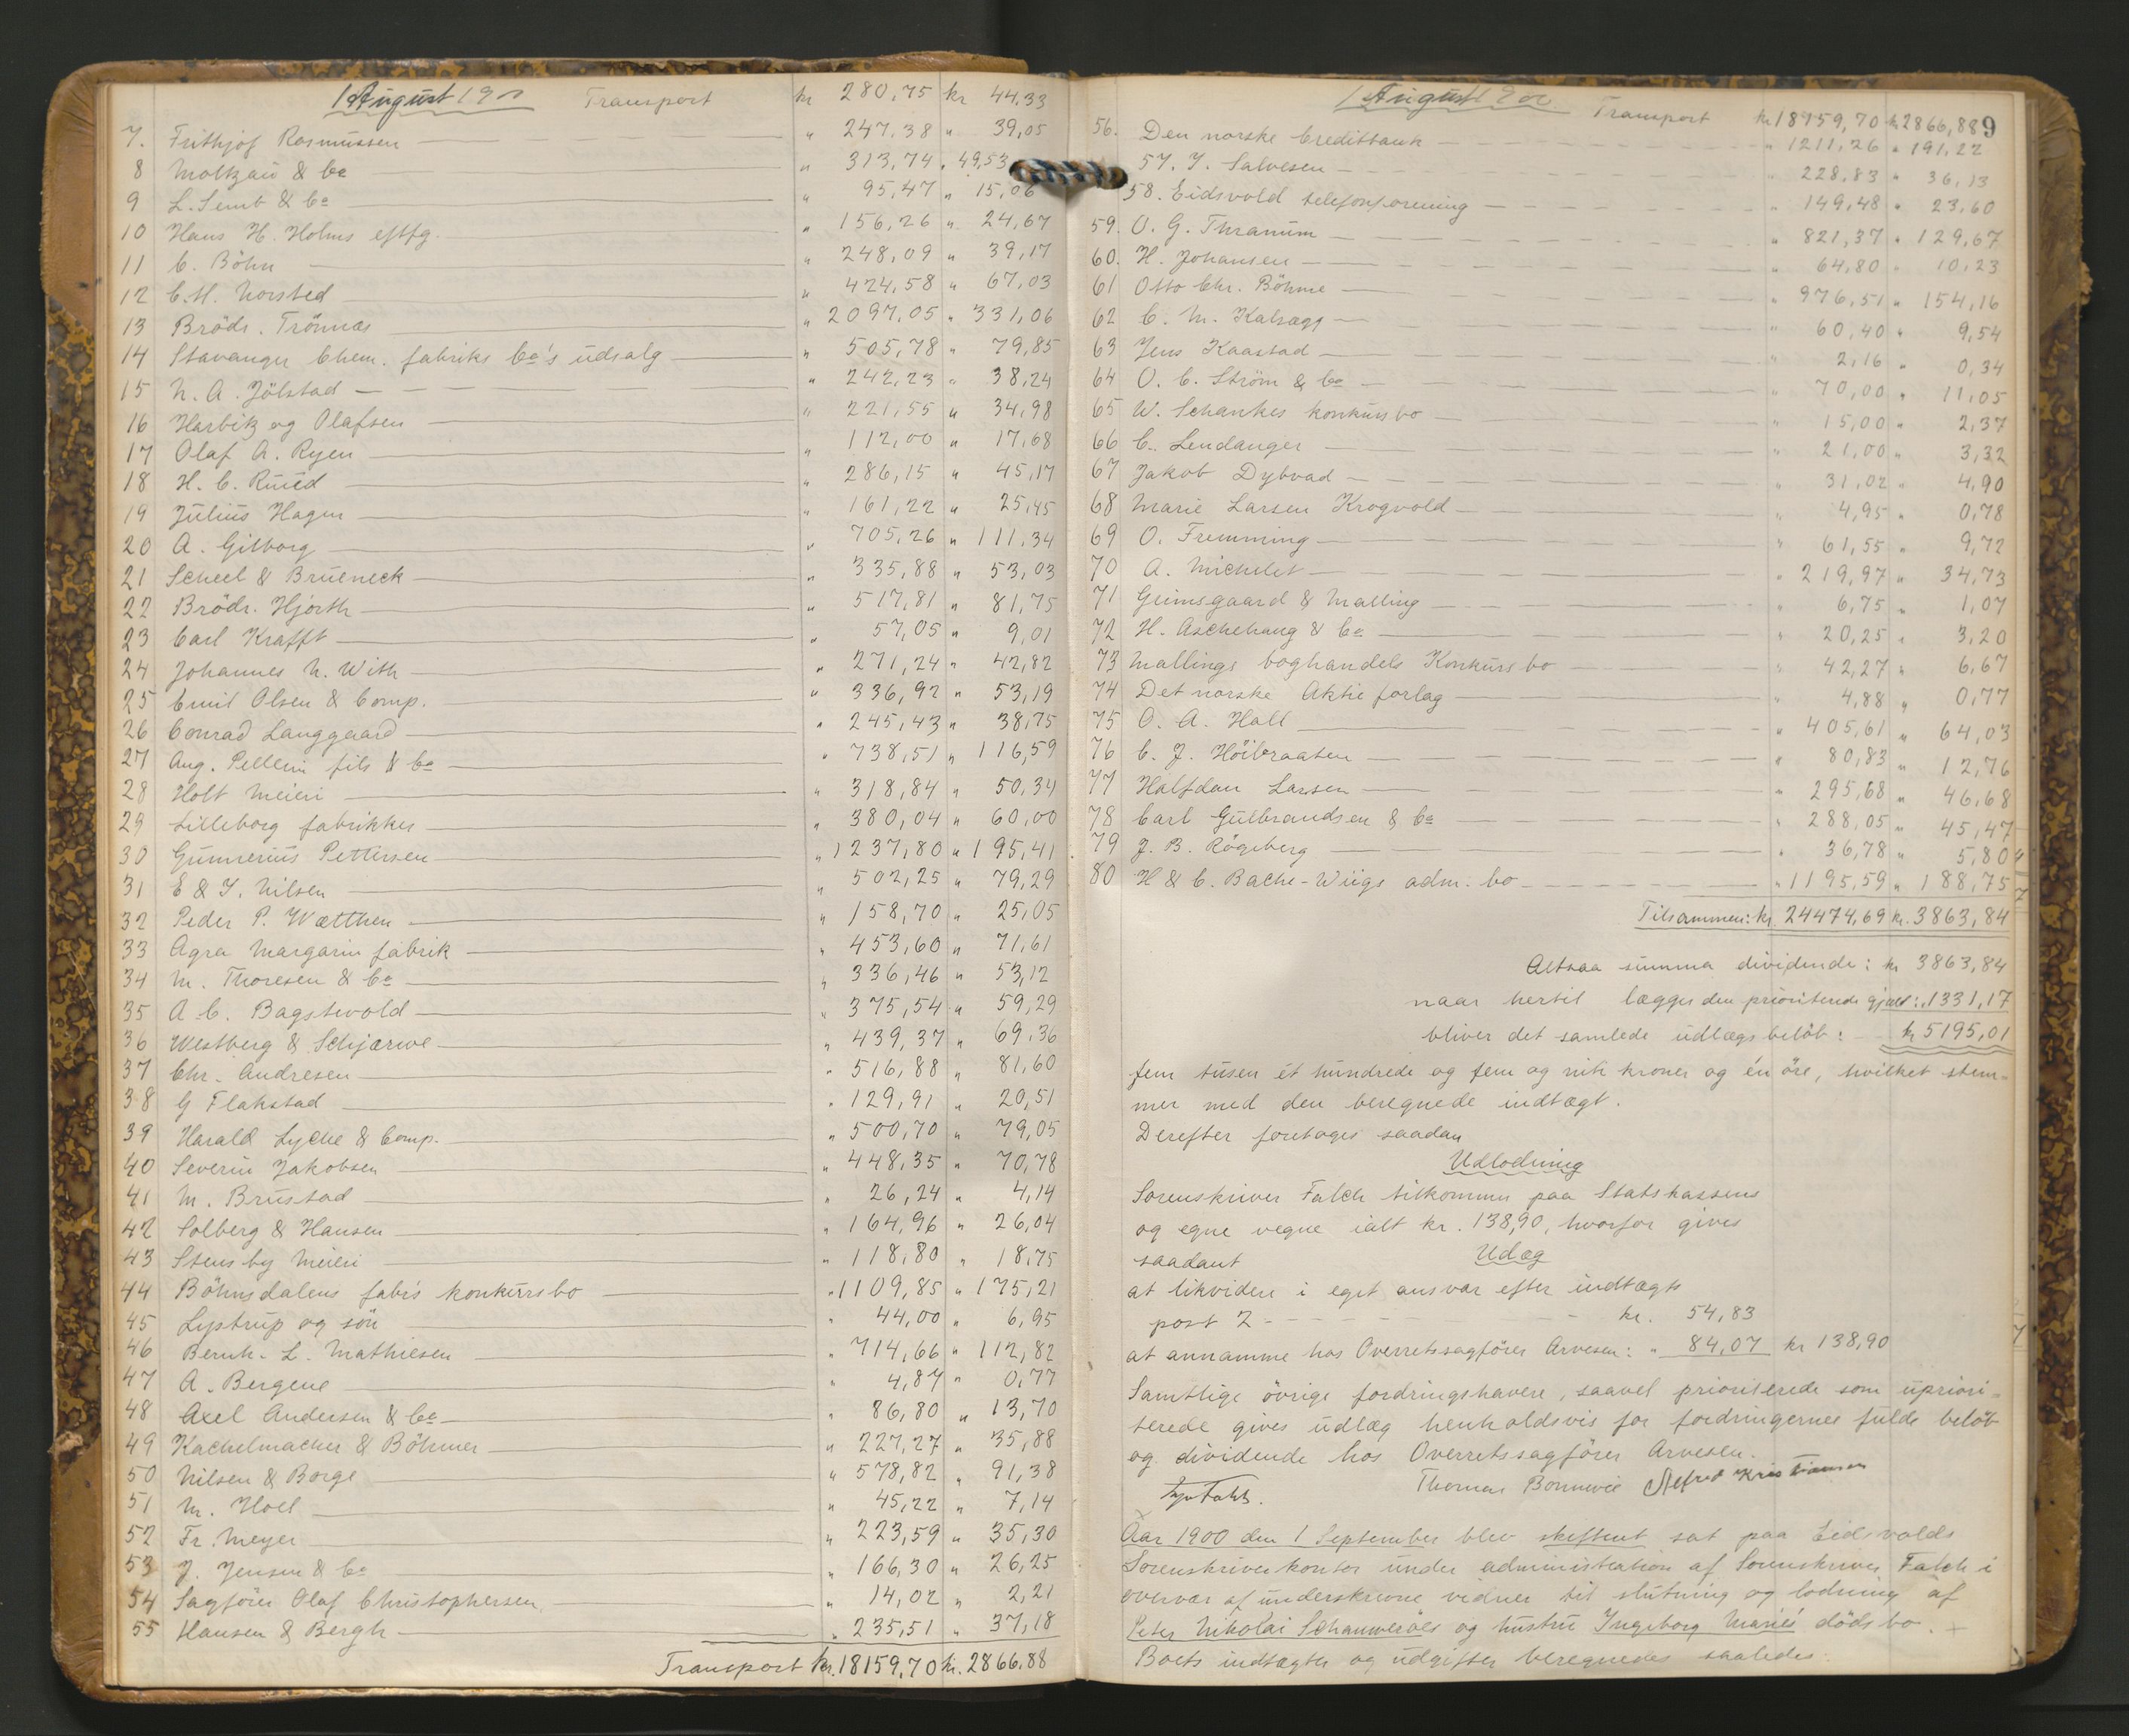 1 August 1900 Transport kr 280,75 kr 44,33
7. Frithjof Rasmussen " 247,38 " 39,05
8 Moltzau & Co " 313,74 " 49,53
9 L. Semb & Co " 95,47 " 15,06
10 Hans H. Holms eftfg. " 156,26 " 24,67
11 C. Böhn " 248,09 " 39,17
12 C. H. Norsted " 424,58 " 67,03
13 Brödr. Trönnæs " 2097,05 " 331,06
14 Stavanger Chem. fabriks Co's udsalg " 505,78 " 79,85
15 N. A. Jölstad " 242,23 " 38,24
16 Harbitz og Olafsen " 221,55 " 34,98
17 Olaf A. Ryen " 112,00 " 17,68
18 H. C. Ruud " 286,15 " 45,17
19 Julius Hagen " 161,22 " 25,45
20 A. Gilborg " 705,26 " 111,34
21 Scheel & Brueneck " 335,88 " 53,03
22 Brödr. Hjorth " 517,81 " 81,75
23 Carl Krafft " 57,05 " 9,01
24 Johannes N. With " 271,24 " 42,82
25 Emil Olsen & Comp. " 336,92 " 53,19
26 Conrad Langgaard " 245,43 " 38,75
27 Aug. Pellerin fils & Co " 738,51 " 116,59
28 Holt Meieri " 318,84 " 50,34
29 Lilleborg fabrikker " 380,04 " 60,00
30 Gunnerius Pettersen " 1237,80 " 195,41
31 E & T. Nilsen " 502,25 " 79,29
32 Peder P. Wætthen " 158,70 " 25,05
33 Agra Margarin fabrik " 453,60 " 71,61
34 M. Thoresen & Co " 336,46 " 53,12
35 A. C. Bagstevold " 375,54 " 59,29
36 Westberg & Schjærwe " 439,37 " 69,36
37 Chr. Andresen " 516,88 " 81,60
38 G Flakstad " 129,91 " 20,51
39 Harald Lyche & Comp. " 500,70 " 79,05
40 Severin Jakobsen " 448,35 " 70,78
41 M. Brustad " 26,24 " 4,14
42 Solberg & Hansen " 164,96 " 26,04
43 Stensby Meieri " 118,80 " 18,75
44 Böhnsdalens fabr's konkursbo " 1109,85 " 175,21
45 Lystrup og sön " 44,00 " 6,95
46 Bernh. L. Mathiesen " 714,66 " 112,82
47 A. Bergene " 4,87 " 0,77
48 Axel Andersen & Co " 86,80 " 13,70
49 Kachelmacher & Böhmer " 227,27 " 35,88
50 Nilsen & Borge " 578,82 " 91,38
51 M. Hoel " 45,22 " 7,14
52 Fr. Meyer " 223,59 " 35,30
53 J. Jensen & Co " 166,30 " 26,25
54 Sagförer Olaf Christophersen " 14,02 " 2,21
55 Hansen & Bergh " 235,51 " 37,18
Transport kr. 18159,70 kr. 2866,88
1 August 1900. Transport kr 18159,70 kr. 2866,88 9
56. Den norske Creditbank " 1211,26 " 191,22
57. J. Salvesen " 228,83 " 36,13
58. Eidsvold telefonforening " 149,48 " 23,60
59. O. G. Thranum " 821,37 " 129,67
60. H. Johansen " 64,80 " 10,23
61 Otto Chr. Böhme " 976,51 " 154,16
62 C. M. Kalsægg " 60,40 " 9,54
63 Jens Kaastad " 2,16 " 0,34
64 O. C. Ström & Co " 70,00 " 11,05
65 W. Schankes konkursbo " 15,00 " 2,37
66 C. Lendanger " 21,00 " 3,32
67 Jakob Dybvad " 31,02 " 4,90
68 Marie Larsen Krogvold " 4,95 " 0,78
69 O. Fremming " 61,55 " 9,72
70 A. Michelet " 219,97 " 34,73
71 Geimsgaard & Malling " 6,75 " 1,07
72 H. Aschehaug & Co " 20,25 " 3,20
73 Mallings boghandels Konkursbo " 42,27 " 6,67
74 Det norske Aktieforlag " 4,88 " 0,77
75 O. A. Hall " 405,61 " 64,03
76 C. J. Höibraaten " 80,83 " 12,76
77 Halfdan Larsen " 295,68 " 46,68
78 Carl Gulbrandsen & Co " 288,05 " 45,47
79 J. B. Rögeberg " 36,78 " 5,80
80 H & C. Bache-Wiigs adm. bo " 1195,59 " 188,75
Tilsammen: kr 24474,69 kr. 3863,84
Altsaa summa dividende: kr 3863,84
naar hertil lægges den prioriterede gjæld: " 1331,17
bliver det samlede udlægsbelöb: kr 5195,01
fem tusen ét hundrede og fem og niti kroner og én öre, hvilket stem-
mer med den beregnede indtægt.
Derefter foretoges saadan
Udlodning
Sorenskriver Falch tilkommer paa Statskassens
og egne vegne ialt kr. 138,90, hvorfor gives
saadant Udlæg
at likvidere i eget ansvar efter indtægts
post 2 kr. 54,83
at annamme hos Overretssagförer Arvesen: " 84,07 kr 138,90
Samtlige övrige fordringshavere, saavel prioriterede som upriori-
terede gives udlæg henholdsvis for fordringernes fulde belöb
og dividende hos Overretssagförer Arvesen.
Thomas Bonnevie Alfred Kristiansen
Aar 1900 den 1 September blev skifteret sat paa Eidsvolds
Sorenskriverkontor under administration af Sorenskriver Falch i
overvær af underskrevne vidner til slutning og lodning af
Peter Nikolai Schanweröes og hustru Ingeborg Maries dödsbo. +
Boets indtægter og udgifter beregnedes saaledes: